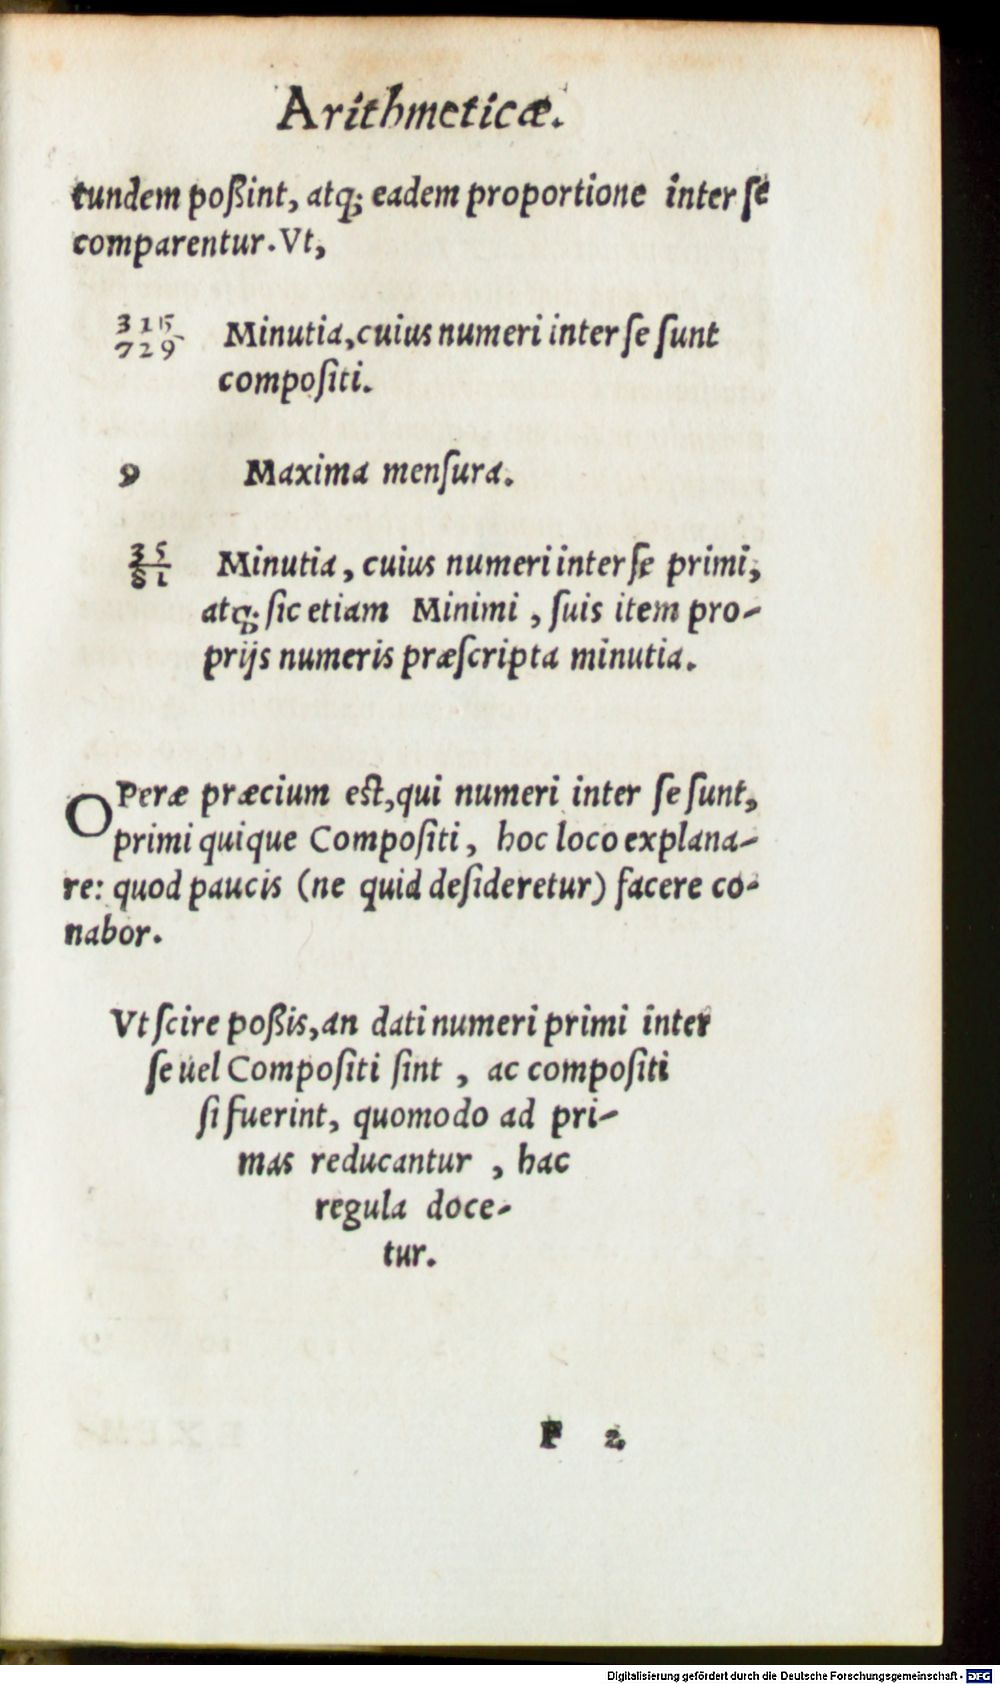 Arithmeticæ.
tundem poßint, atq; eadem proportione inter ſe
comparentur. Vt,
315
729 Minutia, cuius numeri inter ſe ſunt
compoſiti.
9 Maxima menſura.
35
81 Minutia, cuius numeri inter ſe primi,
atq; ſic etiam Minimi, ſuis item pro-
prijs numeris præſcripta minutia.
OPeræ præcium eſt, qui numeri inter ſe ſunt,
primi quique Compoſiti, hoc loco explana-
re: quod paucis (ne quid deſideretur) facere co-
nabor.
Vt ſcire poßis, an dati numeri primi inter
ſe uel Compoſiti ſint, ac compoſiti
ſi fuerint, quomodo ad pri-
mas reducantur, hac
regula doce-
tur.
F 2
Digitalisierung gefördert durch die Deutsche Forschungsgemeinschaft - DFG